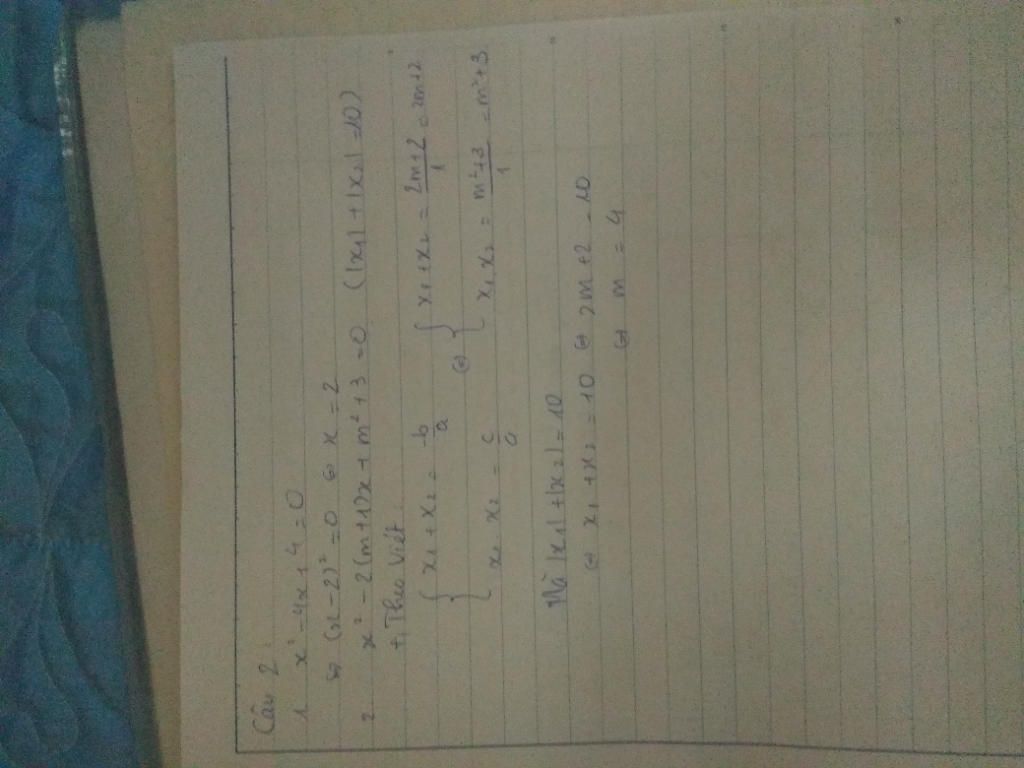 Câu 2
1 x² - 4x + 4 = 0
⇔ (x - 2)² = 0 ⇔ x = 2
2 x² - 2(m+1)x + m² + 3 = 0 (|x₁| + |x₂| = 10)
+, Theo Viét:
{ x₁ + x₂ = -b/a ⇔ { x₁ + x₂ = 2m+2/1 = 2m+2
{ x₁ . x₂ = c/a { x₁ x₂ = m²+3/1 = m²+3
Mà |x₁| + |x₂| = 10
⇔ x₁ + x₂ = 10 ⇔ 2m + 2 = 10
⇔ m = 4